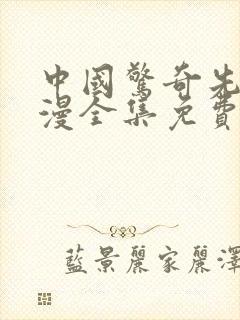 中國驚奇先
漫全集免費
藍景麗家麗澤